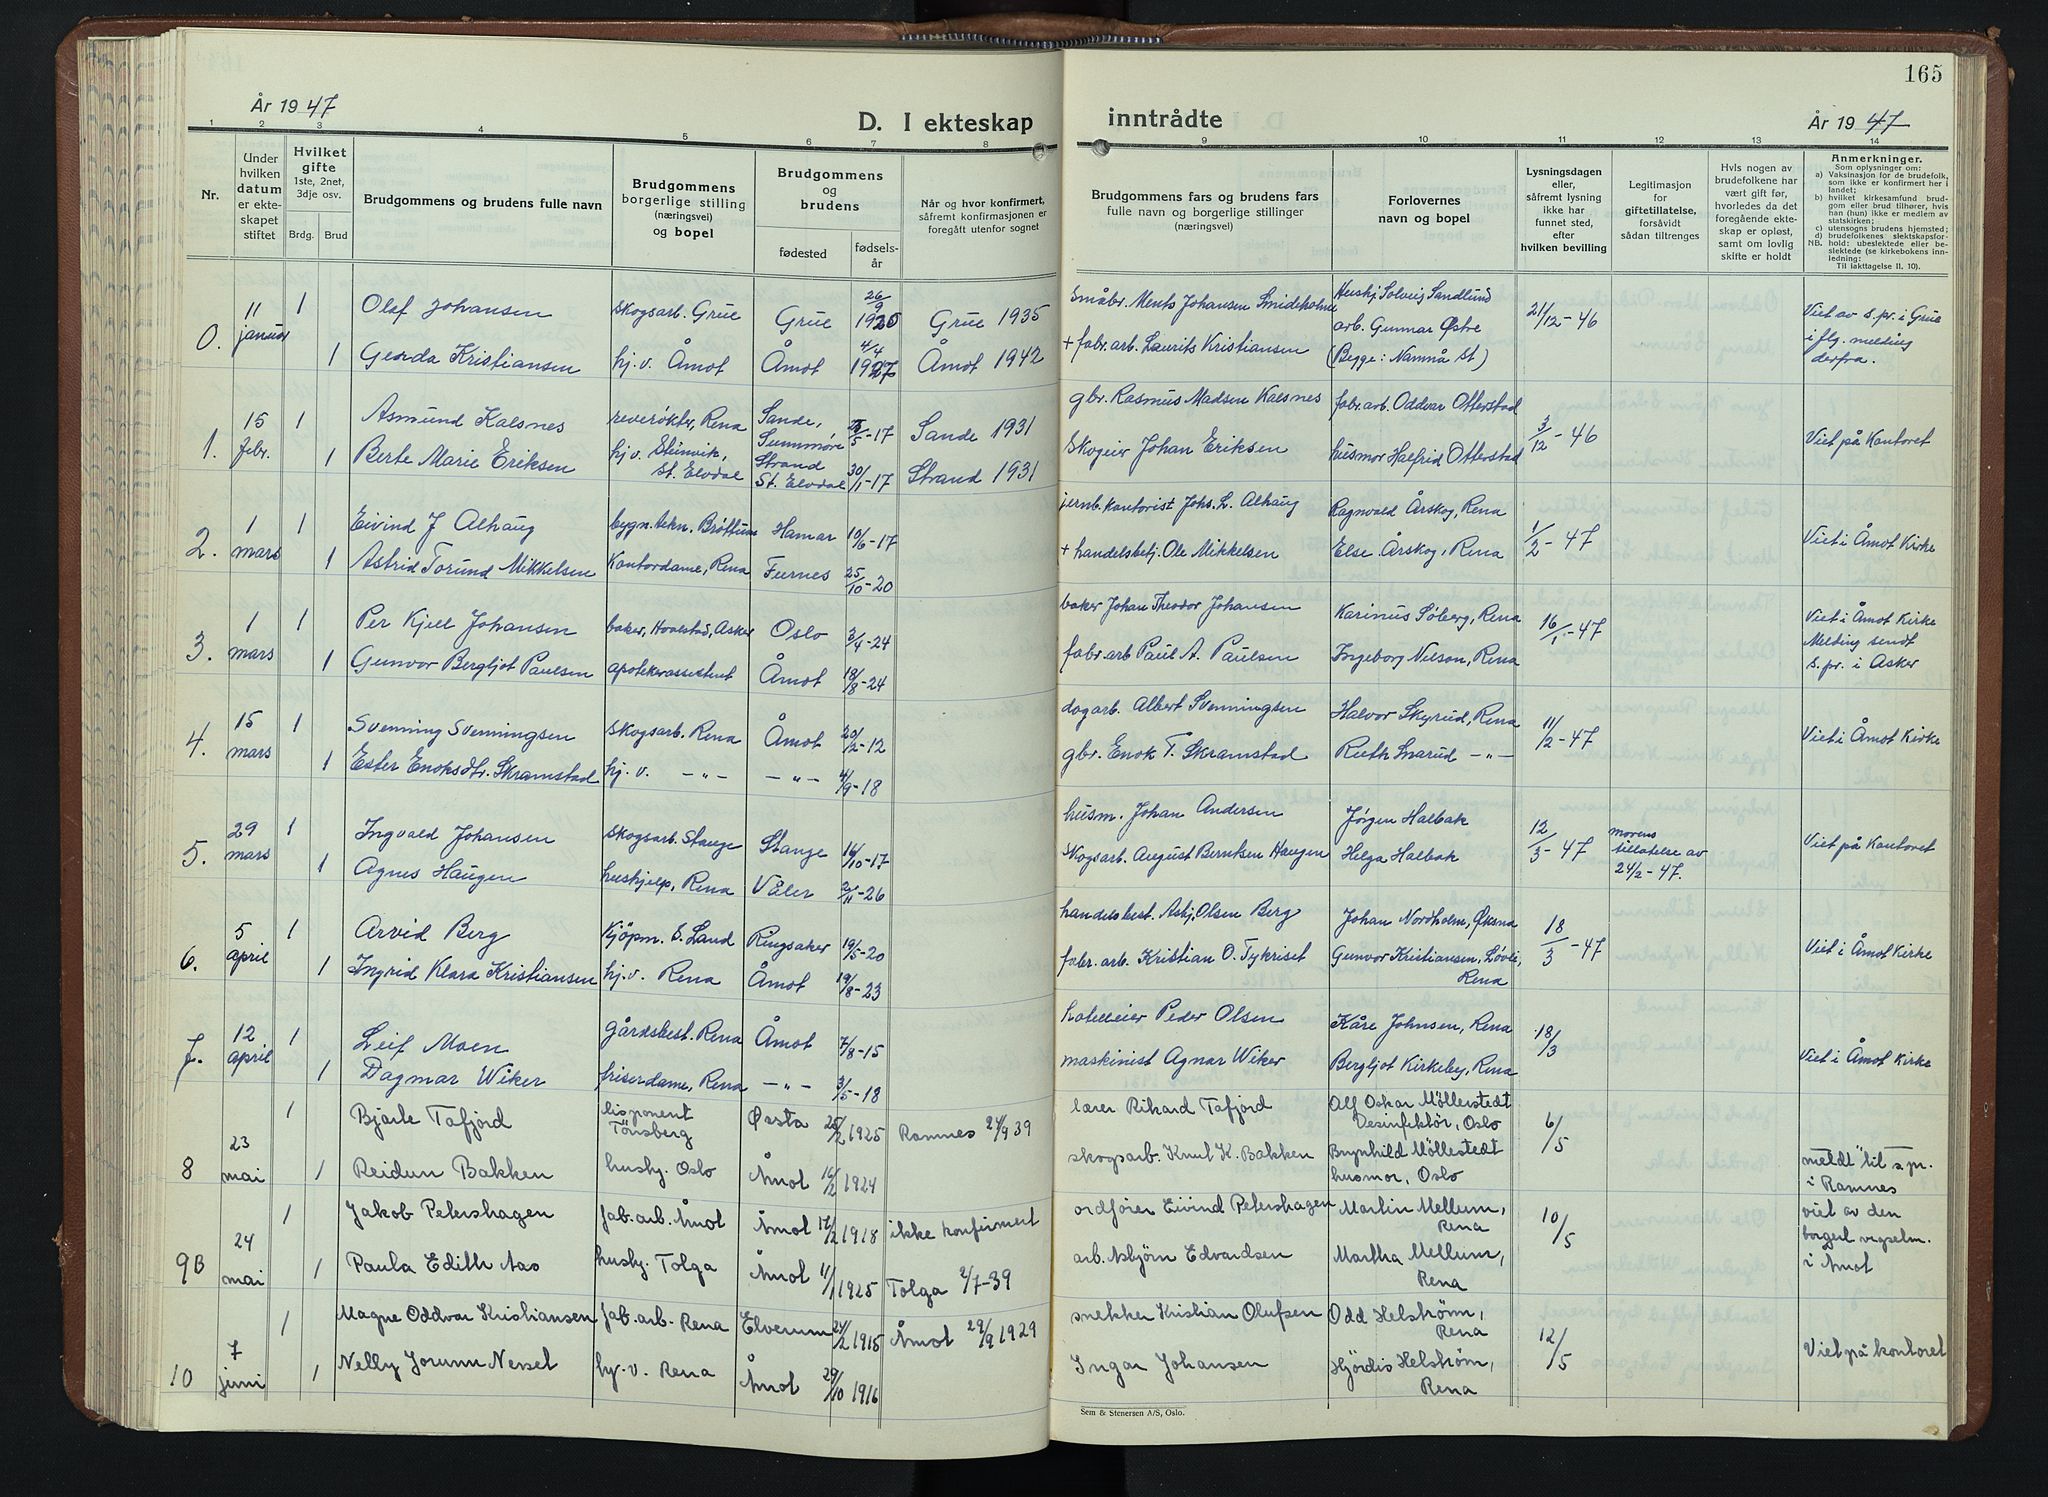 År 1947
D. I ekteskap
1 2 3 4 5 6 7 8
Nr.
Under hvilken datum er ekteskapet stiftet
Hvilket gifte
1ste, 2net, 3dje osv.
Brdg. Brud
Brudgommens og brudens fulle navn
Brudgommens borgerlige stilling (næringsvei) og bopel
Brudgommens og brudens
fødested
fødselsår
Når og hvor konfirmert, såfremt konfirmasjonen er foregått utenfor sognet
0. 11 januar 1 Olaf Johansen skogsarb. Grue Grue 26/9 1920 Grue 1935
1 Gerda Kristiansen hj.v. Åmot Åmot 4/4 1927 Åmot 1942
1. 15 febr. 1 Asmund Kalsnes reverøkter, Rena Sande, Sunnmøre /5-17 Sande 1931
1 Berte Marie Eriksen hj.v. Steinvik, St. Elvdal Strand St. Elvdal 30/1-17 Strand 1931
2. 1 mars 1 Eivind J Alhaug bygn.tekn. Brøttum Hamar 10/6-17
1 Astrid Torund Mikkelsen Kontordame, Rena Furnes 25/10-20
3. 1 mars 1 Per Kjell Johansen baker, Hvalstad, Asker Oslo 3/4-24
1 Gunvor Bergljot Paulsen apotekerassistent Åmot 18/8-24
4. 15 mars 1 Svenning Svenningsen skogsarb. Rena Åmot 20/2-12
1 Ester Enoksdtr. Skramstad hj.v. -"- -"- 4/9-18
5. 29 mars 1 Ingvald Johansen skogsarb. Stange Stange 16/10-17
1 Agnes Haugen hushjelp, Rena Våler 2/11-26
6. 5 april 1 Arvid Berg Kjøpm. S. Land Ringsaker 19/5-20
1 Ingrid Klara Kristiansen hj.v. Rena Åmot 19/8-23
7. 12 april 1 Leif Moen gårdsbest. Rena Åmot 7/8-15
1 Dagmar Wiker friserdame, Rena -"- 3/5-18
8 23 mai 1 Bjarle Tafjord disponent Tönsberg Ørsta 25/2 1925 Ramnes 24/9 39
1 Reidun Bakken hushj. Oslo Åmot 16/2 1924
9B 24 mai 1 Jakob Petershagen fab.arb. Åmot Åmot 17/2 1918 ikke konfirmert
1 Paula Edith Aas hushj. Tolga Åmot 11/1 1925 Tolga 2/7-39
10 7 juni 1 Magne Oddvar Kristiansen fab.arb. Rena Elverum 24/2 1915 Åmot 29/9 1929
1 Nelly Jorunn Nesset hj.v. Rena Åmot 29/10 1916
165
inntrådte
År 1947
9 10 11 12 13 14
Brudgommens fars og brudens fars fulle navn og borgerlige stillinger (næringsvei)
Forlovernes navn og bopel
Lysningsdagen eller, såfremt lysning ikke har funnet sted, efter hvilken bevilling
Legitimasjon for giftetillatelse, forsåvidt sådan tiltrenges
Hvis nogen av brudefolkene har vært gift før, hvorledes da det foregående ekteskap er opløst, samt om lovlig skifte er holdt
Anmerkninger.
Som oplysninger om:
a) Vaksinasjon for de brudefolk, som ikke er konfirmert her i landet;
b) hvilket kirkesamfund brudgom eller brud tilhører, hvis han (hun) ikke er medlem av statskirken;
c) utensogns brudens hjemsted;
d) brudefolkenes slektskapsforhold: ubeslektede eller beslektede (se kirkebokens innledning:
NB.
Til iakttagelse II. 10).
Småbr. Ments Johansen Smideholme Hushj Solveig Sandlund 21/12-46 Viet av s.pr. i Grue
arb. Gunnar Østre i flg. melding
+ fabr.arb. Laurits Kristiansen (Begge: Namnå St) derfra.
gbr. Rasmus Madsen Kalsnes fabr.arb. Oddvar Otterstad 3/12-46 Viet på Kontoret
Skogeier Johan Eriksen husmor Halfrid Otterstad
jernb.kontorist Johs. L. Alhaug Ragnvald Årskog, Rena 1/2-47 Viet i Åmot Kirke
+ handelsbetj. Ole Mikkelsen Else Årskog, Rena
baker Johan Theodor Johansen Karinus Søberg, Rena 16/1-47 Viet i Åmot Kirke
Melding sendt
fabr.arb Paul A. Paulsen Ingeborg Nilson, Rena s.pr. i Asker
dagarb. Albert Svenningsen Halvor Skyrud, Rena 11/2-47 Viet i Åmot Kirke
gbr. Enok T. Skramstad Ruth Snarud -"-
husm. Johan Andersen Jørgen Halbak 12/3-47 morens tillatelse av 24/2-47. Viet på Kontoret
Skogsarb. August Berntsen Haugen Helga Halbak
handelsbest. Askj. Olsen Berg Johan Nordholm, Øksna 18/3-47 Viet i Åmot Kirke
fabr.arb. Kristian O. Tykriset Gunvor Kristiansen, Løvli, Rena
hotelleier Peder Olsen Kåre Johnsen, Rena 18/3 Viet i Åmot Kirke
maskinist Agnar Wiker Bergljot Kirkeby, Rena
lærer Rikard Tafjord Alf Oskar Möllerstedt Desinfektör, Oslo 6/5
skogsarb. Knut K. Bakken Brynhild Möllestedt husmor, Oslo meldt til s.pr. i Ramnes
ordfører Eivind Petershagen Martin Mellum, Rena 10/5 viet av den
borgerl vigselm.
arb. Asbjørn Edvardsen Martha Mellum, Rena i Åmot
snekker Kristian Olufsen Odd Helstrøm, Rena 12/5 Viet på kontoret
Ingar Johansen Hjördis Helstrøm, Rena
Sem & Stenersen A/S, Oslo.